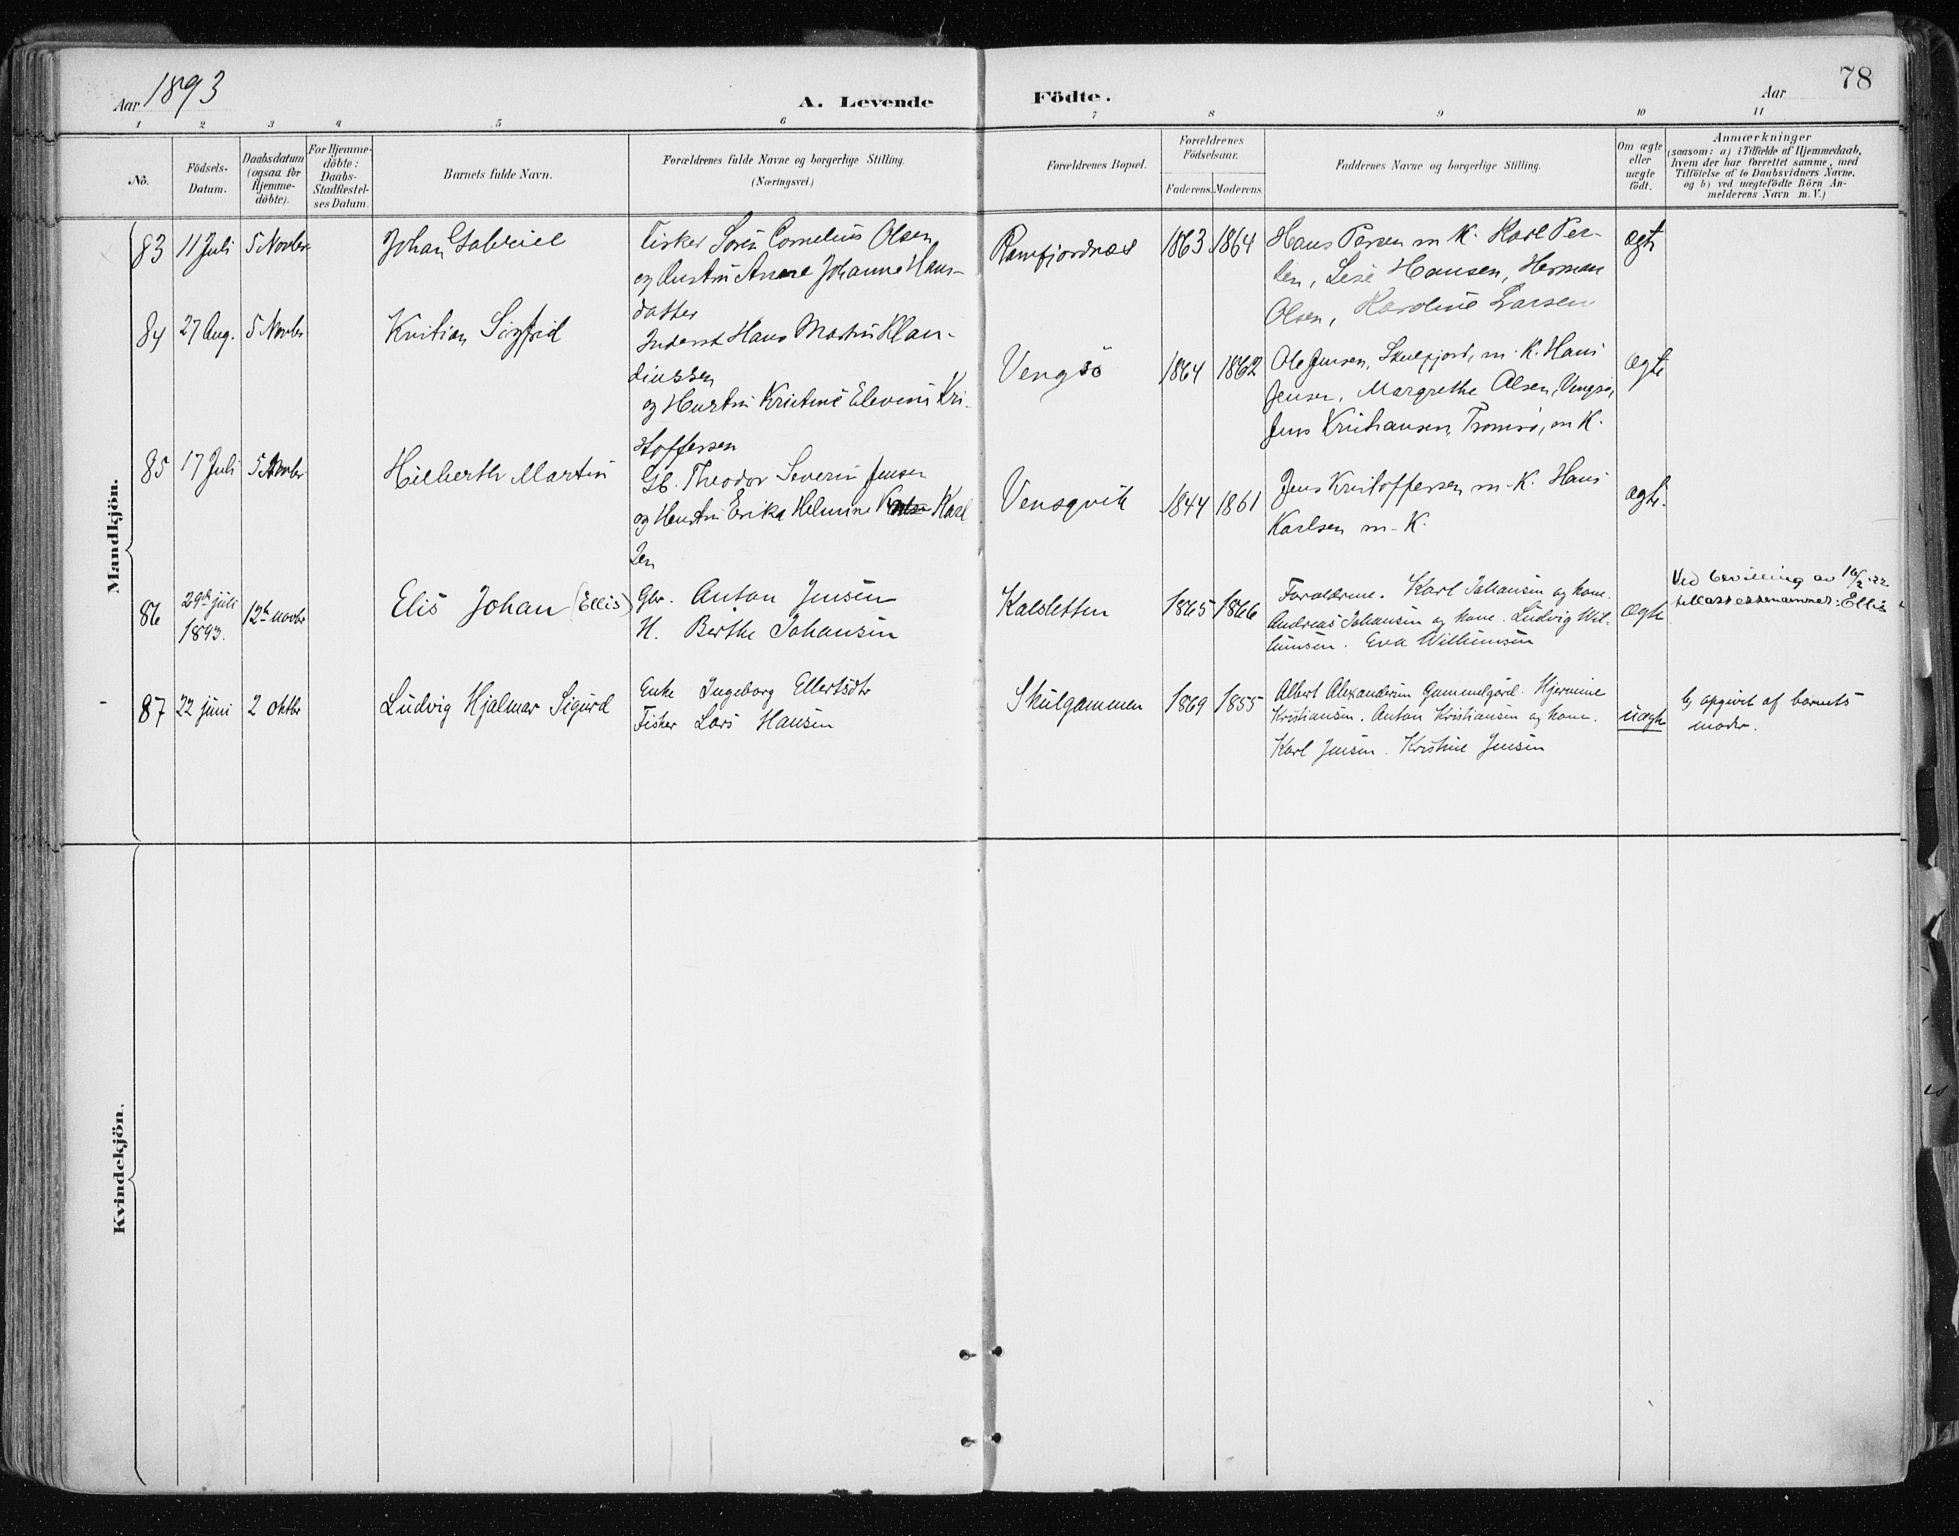 Aar 1893
A. Levende Födte.
Aar 78
1 2 3 4 5 6 7 8 9 10 11
No.
Födsels-Datum.
Daabsdatum (ogsaa for Hjemme-döbte).
For Hjemme-döbte: Daabs-Stadfæstel-ses Datum.
Barnets fulde Navn.
Forældrenes fulde Navne og borgerlige Stilling.
(Næringsvei.)
Forældrenes Bopæl.
Forældrenes Födselsaar.
Faderens. Moderens.
Faddernes Navne og borgerlige Stilling.
Om ægte eller uægte födt.
Anmærkninger
(saasom: a) i Tilfælde af Hjemmedaab,
hvem der har forrettet samme, med
Tilföielse af to Daabsvidners Navne,
og b) ved uægtefödte Börn An-
melderens Navn m. V.)
Mandkjön.
83 11 Juli 5 Novbr Johan Gabriel
Fisker Sören Cornelius Olsen
og Hustru Anne Johanne Hans-
datter
Ramfjordnæs 1863 1864
Hans Persen m. K. Karl Per-
sen, Lese Hansen, Herman
Olsen, Karoline Larsen
ægte
84 27 Aug. 5 Novbr Kristian Sigfrid
Inderst Hans Martin Klau-
diussen
og Hustru Kristine Elevine Kri-
stoffersen
Vengsö 1864 1862
Ole Jensen, Skulsfjord, m. K. Hans
Jensen, Margrethe Olsen, Vengsö,
Jens Kristiansen, Tromsö, m K.
ægte
85 17 Juli 5 Novbr Hilberth Martin
Gb. Theodor Severin Jensen
og Hustru Erika Helmine Karl
sen
Vensqvik 1844 1861
Jens Kristoffersen m. K. Hans
Karlsen m. K.
ægte.
86 29de juli 1893. 12te novbr Elis Johan (Ellis)
Gbr. Anton Jensen
H. Berthe Johansen
Kalsletten 1865 1866
Forældrene. Karl Johansen og kone.
Andreas Johansen og kone. Ludvig Wil-
lumsen. Eva Willumsen
ægte
Ved bevilling av 16/2 22
Ellis
87 22 juni 2 oktbr Ludvig Hjalmar Sigurd
Enke Ingeborg Ellertsdtr
Fisker Lars Hansen
Skulgammen 1869 1855
Albert Alexandersen Gammelgård. Hjermine
Kristiansen. Anton Kristiansen og kone.
Karl Jensen. Kristine Jensen
uægte
opgivet af barnets
moder.
Kvindekjön.